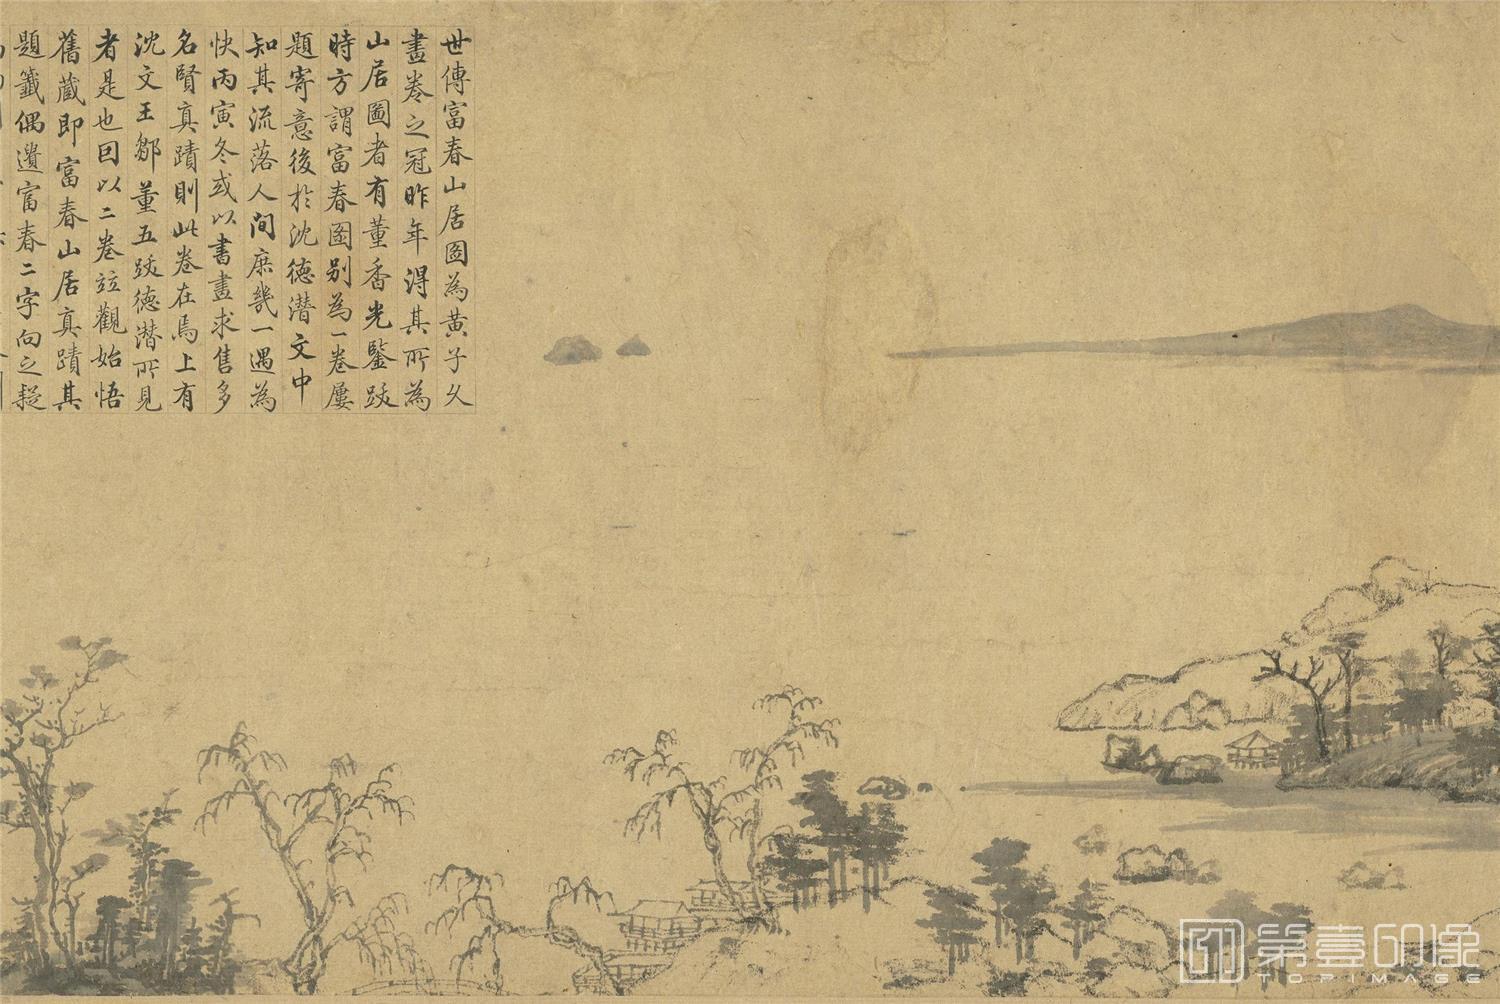 世傳富春山居圖為黃子久
畫卷之冠昨年得其所為
山居圖者有董香光鑒跋
時方謂富春圖别為一卷屢
題寄意後於沈德潛文中
知其流落人間庶幾一遇為
快丙寅冬或以書畫求售多
名賢真蹟則此卷在焉上有
沈文王鄒董五跋德潛所見
者是也因以二卷竝觀始悟
舊蔵即富春山居真蹟其
題籤偶遺富春二字向之疑
第壹印像
TOPIMAGE